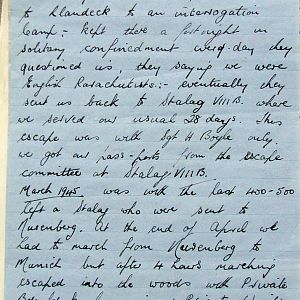 to Llandeck to an interrogation
Camp - kept there a fortnight in
solitary confinedment every-day they
questioned us they saying we were
English Parachutists:- eventually they
sent us back to Stalag VIII B. where
we served our usual 28 days. This
escape was with Sgt H Boyle only.
we got our pass-ports from the escape
committee at Stalag VIII B.
March 1945. was with the last 400-500
left a Stalag who were sent to
Nuremberg. At the end of April we
had to march from Nuremberg to
Munich but after 4 hours marching
escaped into the woods with Private